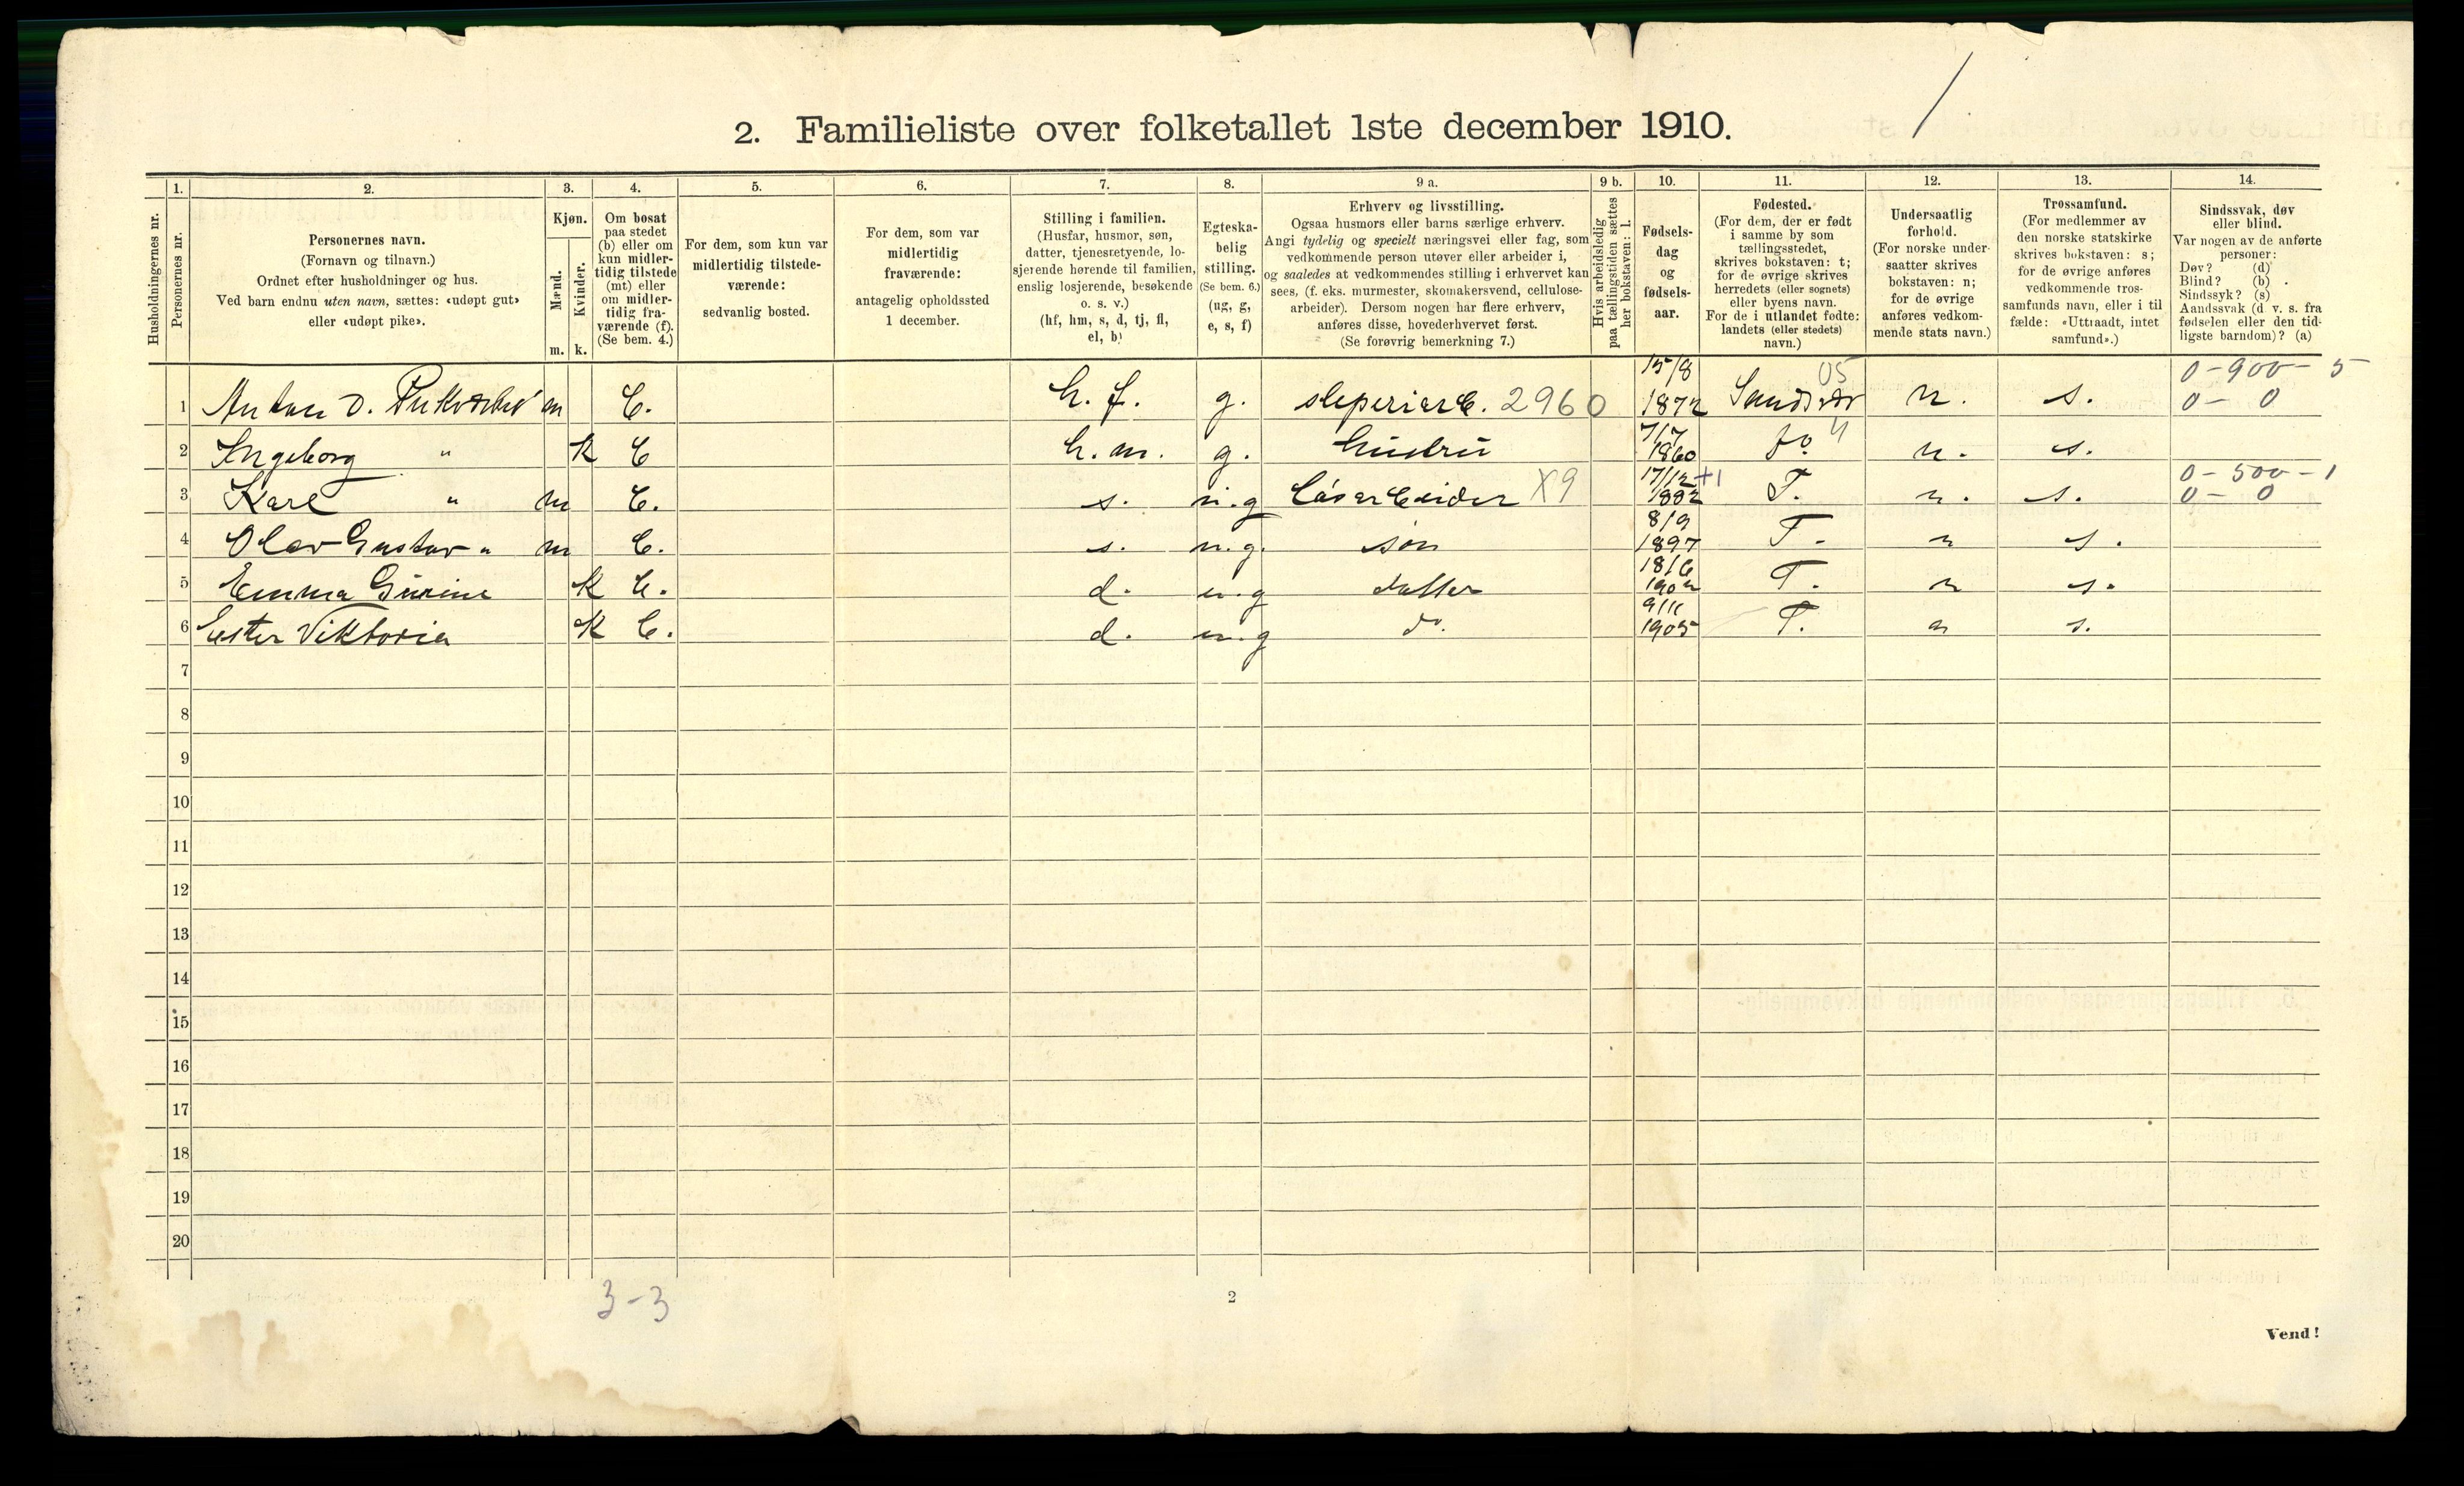 2. Familieliste over folketallet 1ste december 1910.
1. 2. 3. 4. 5. 6. 7. 8. 9 a. 9 b. 10. 11. 12. 13. 14.
Husholdningernes nr.
Personernes nr.
Personernes navn.
(Fornavn og tilnavn.)
Ordnet efter husholdninger og hus.
Ved barn endnu uten navn, sættes: «udøpt gut»
eller «udøpt pike».
Kjøn.
Mænd.
Kvinder.
m. k.
Om bosat
paa stedet
(b) eller om
kun midler-
tidig tilstede
(mt) eller
om midler-
tidig fra-
værende (f).
(Se bem. 4.)
For dem, som kun var
midlertidig tilstede-
værende:
sedvanlig bosted.
For dem, som var
midlertidig
fraværende:
antagelig opholdssted
1 december.
Stilling i familien.
(Husfar, husmor, søn,
datter, tjenestetyende, lo-
sjerende hørende til familien,
enslig losjerende, besøkende
o. s. v.)
(hf, hm, s, d, tj, fl,
el, b)
Egteska-
belig
stilling.
(Se bem. 6.)
(ug, g,
e, s, f)
Erhverv og livsstilling.
Ogsaa husmors eller barns særlige erhverv.
Angi tydelig og specielt næringsvei eller fag, som
vedkommende person utøver eller arbeider i,
og saaledes at vedkommendes stilling i erhvervet kan
sees, (f. eks. murmester, skomakersvend, cellulose-
arbeider). Dersom nogen har flere erhverv,
anføres disse, hovederhvervet først.
(Se forøvrig bemerkning 7.)
Hvis arbeidsledig
paa tællingstiden sættes
her bokstaven: l.
Fødsels-
dag
og
fødsels-
aar.
Fødested.
(For dem, der er født
i samme by som
tællingsstedet,
skrives bokstaven: t;
for de øvrige skrives
herredets (eller sognets)
eller byens navn.
For de i utlandet fødte:
landets (eller stedets)
navn.)
Undersaatlig
forhold.
(For norske under-
saatter skrives
bokstaven: n;
for de øvrige
anføres vedkom-
mende stats navn.)
Trossamfund.
(For medlemmer av
den norske statskirke
skrives bokstaven: s;
for de øvrige anføres
vedkommende tros-
samfunds navn, eller i til
fælde: «Uttraadt, intet
samfund».)
Sindssvak, døv
eller blind.
Var nogen av de anførte
personer:
Døv? (d)
Blind? (b)
Sindssyk? (s)
Aandssvak (d v. s. fra
fødselen eller den tid-
ligste barndom)? (a)
1 Anton D. m b. h. f. g. sleperiarb. 2960 15/8 1872 Sandsvær 05 n. s. 0-900-5 0-0
2 Ingeborg " K b h. m. g. hustru 7/7 1860 do. 4 n. s.
3 Karl " m b. s. u.g løsarbeider X9 17/12 +1 1892 T. n. s. 0-500-1 0-0
4 Olav Gustav " m b. s. u.g. søn 8/9 1897 T. n s.
5 Emma Gurine K b. d. u.g datter 18/6 1902 T. n s.
6 Ester Viktoria K b. d. u.g do. 9/11 1905 T. n s.
7
8
9
10
11
12
13
14
15
16
17
18
19
20
3-3
2
Vend!